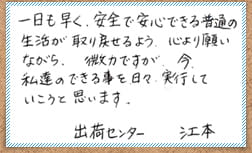 一日も早く、安全で安心できる普通の
生活が取り戻せるよう、心より願い
ながら、微力ですが、今、
私達のできる事を日々、実行して
いこうと思います。
出荷センター 江本